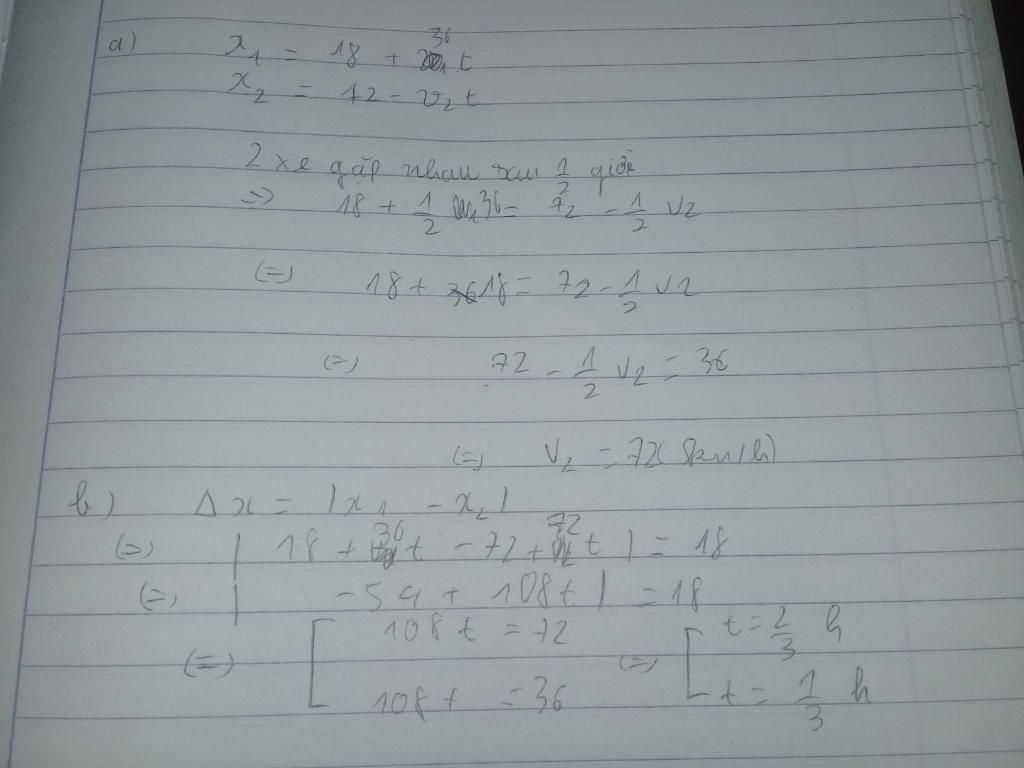 a) x₁ = 18 + 36 t
x₂ = 72 - v₂ t
2 xe gặp nhau sau 1/2 giờ
=> 18 + 1/2 36 = 72 - 1/2 v₂
(=) 18 + 18 = 72 - 1/2 v₂
(=) 72 - 1/2 v₂ = 36
(=) v₂ = 72 (km/h)
b) Δx = |x₁ - x₂|
(=) | 18 + 36 t - 72 + 72 t | = 18
(=) | -54 + 108t | = 18
(=) [ 108 t = 72 (=) [ t = 2/3 h
108 t = 36 t = 1/3 h